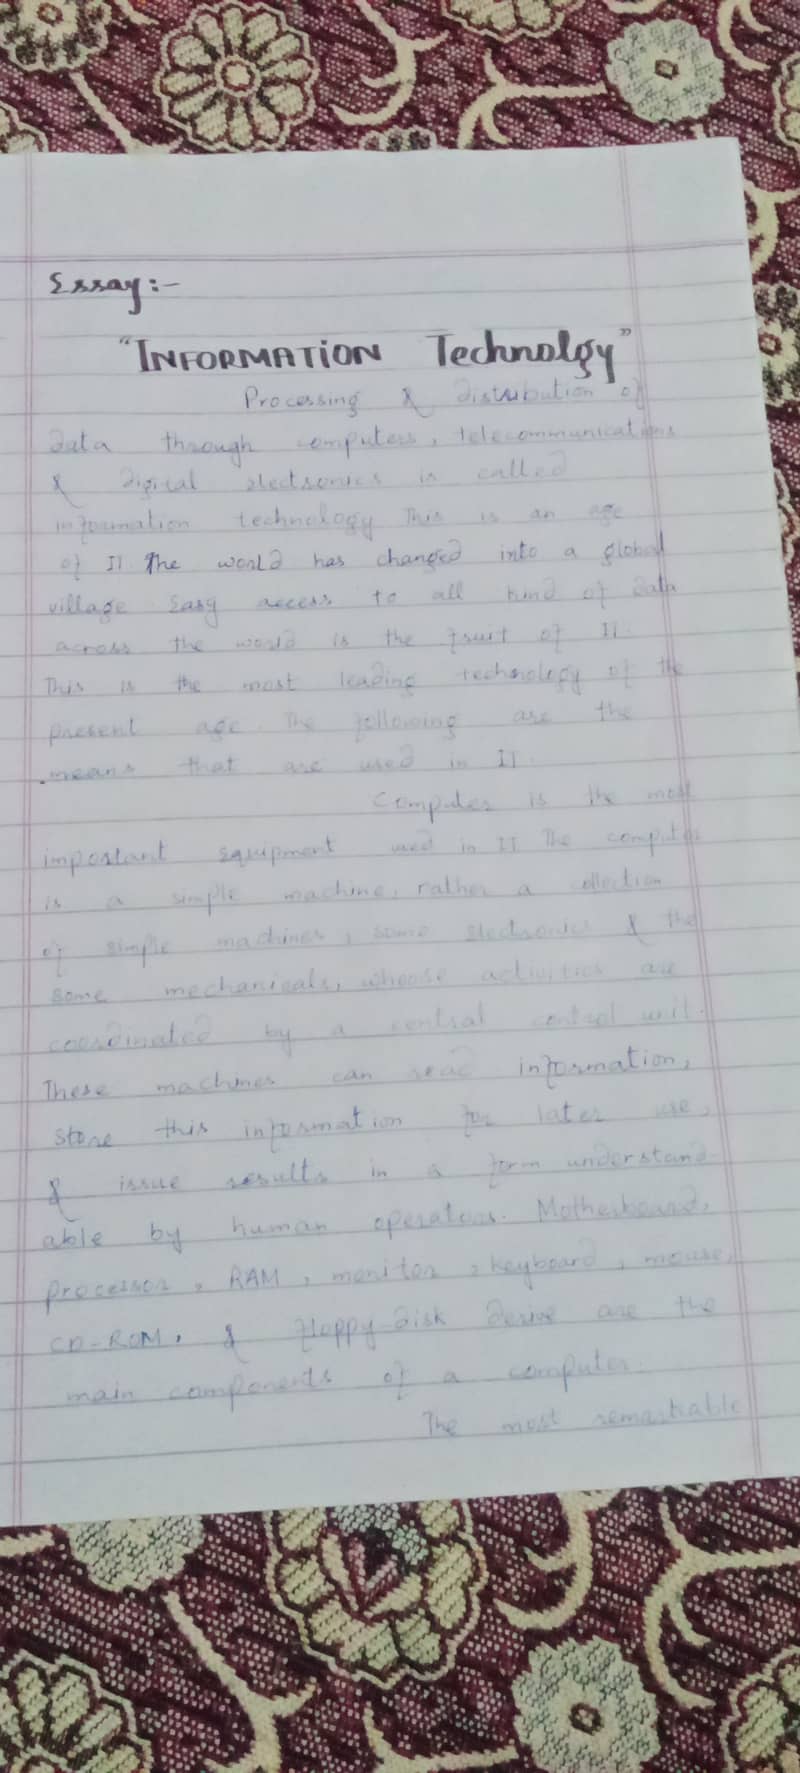 Essay:-
"INFORMATION Technolgy"
Processing & distribution of
data through computers, telecommunications
& digital electronics is called
information technology This is an age
of IT The world has changed into a global
village Easy access to all kind of data
across the world is the fruit of IT.
This is the most leading technology of the
present age. The following are the
means that are used in IT.
Computer is the most
important equipment used in IT The computer
is a simple machine, rather a collection
of simple machines, some electronics & the
some mechanicals, whoose activities are
coordinated by a central control unit.
These machines can read information,
store this information for later use,
& issue results in a form understand-
able by human operators. Motherboard,
processor, RAM, monitor, keyboard, mouse,
CD-ROM, & floppy-disk derive are the
main components of a computer.
The most remarkable